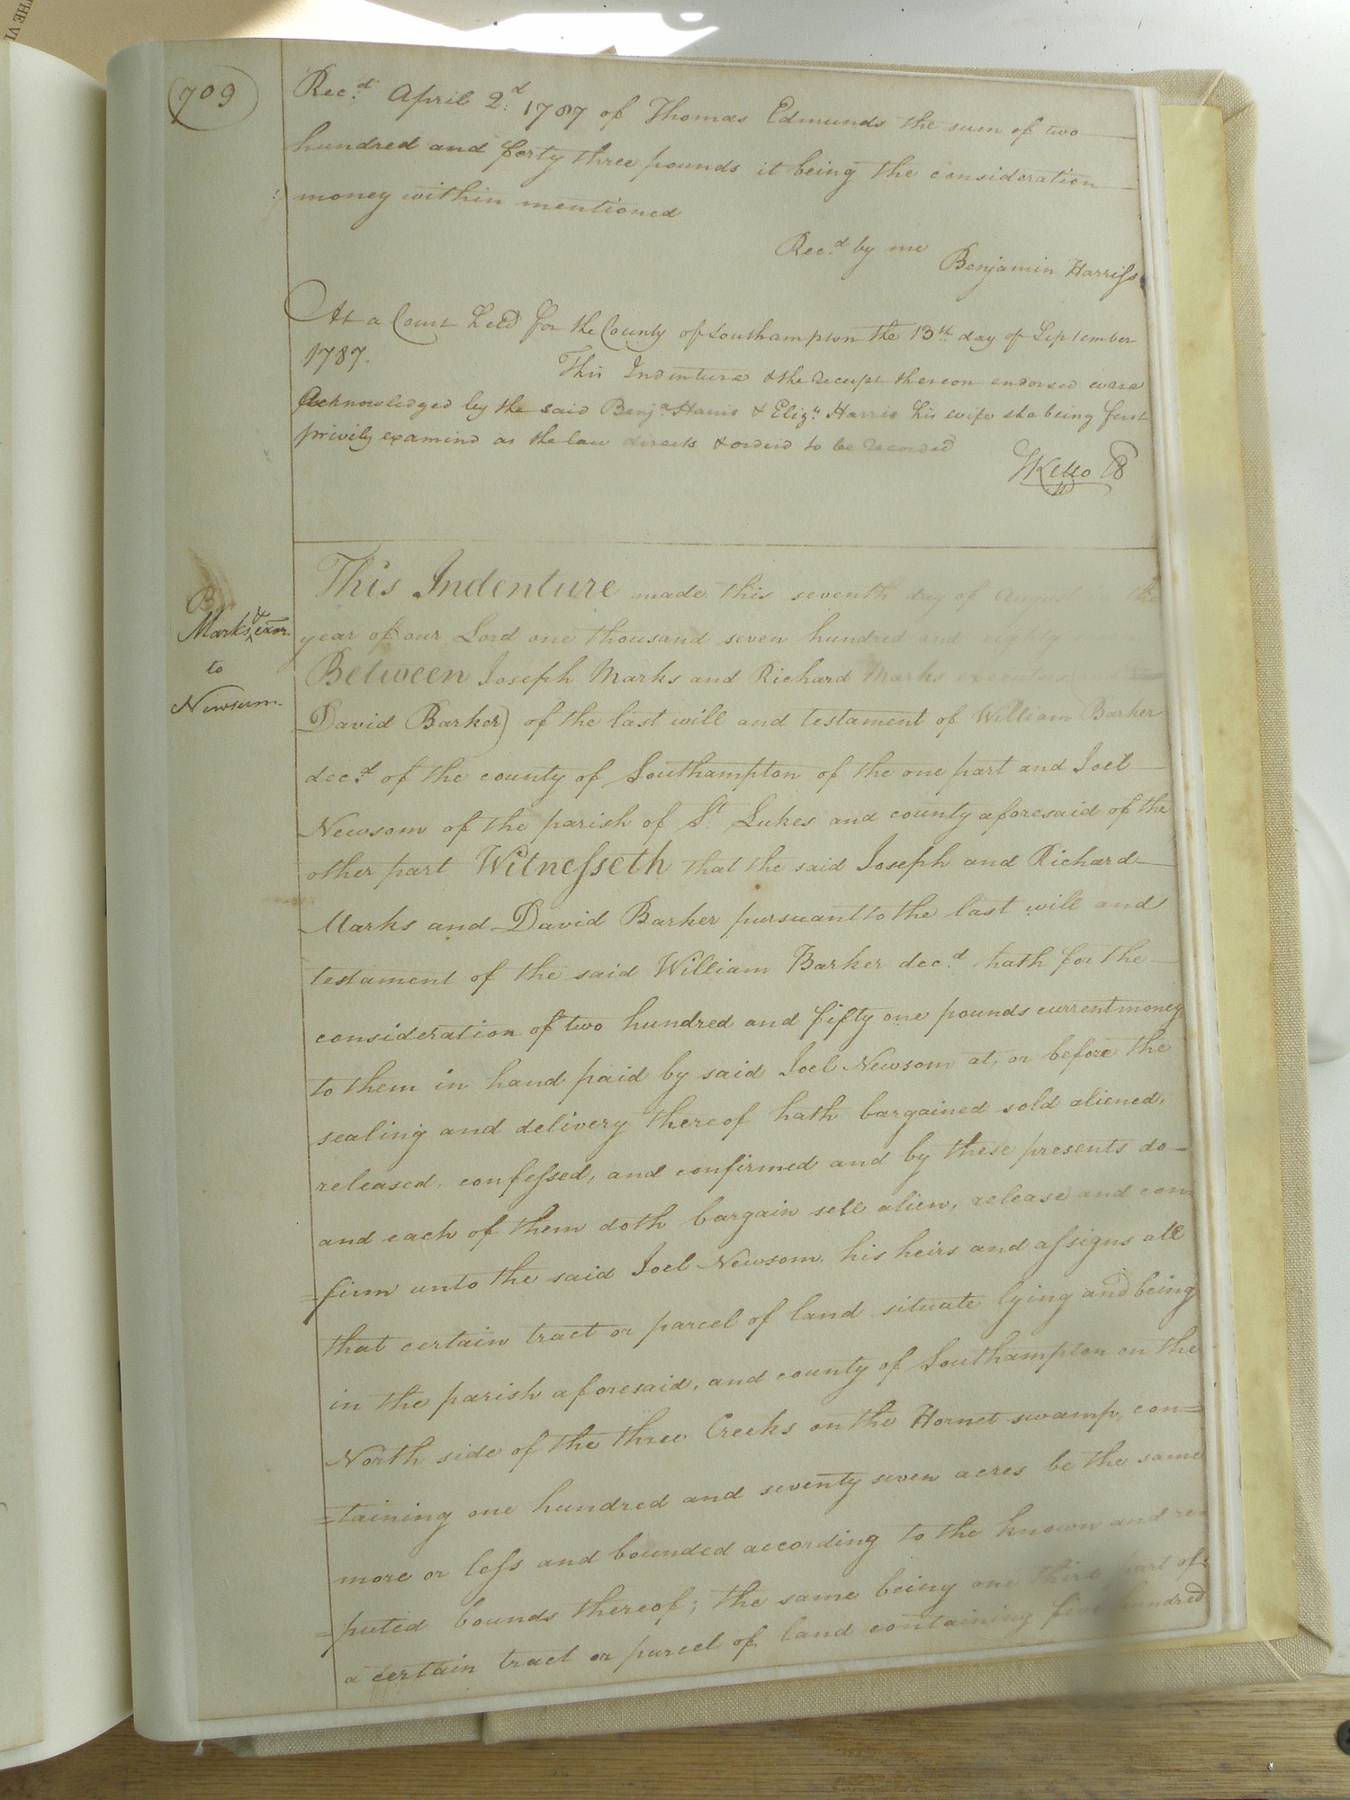 709
Rec.d April 2.d 1787 of Thomas Edmunds the sum of two
hundred and forty three pounds it being the consideration
money within mentioned
Rec.d by me Benjamin Harriss
At a Court Held for the County of Southampton the 13th day of September
1787. This Indenture & the receipt thereon endorsed were
Acknowledged by the said Benja Harris & Eliza Harris his wife she being first
privily examind as the law directs & orderd to be recorded
This Indenture made this seventh day of August in the
year of our Lord one thousand seven hundred and eighty
Marks & exor.
to
Newsum.
Between Joseph Marks and Richard Marks executors
David Barker) of the last will and testament of William Barker
dec.d of the county of Southampton of the one part and Joel
Newsom of the parish of St. Lukes and county aforesaid of the
other part Witnesseth that the said Joseph and Richard
Marks and David Barker pursuant to the last will and
testament of the said William Barker dec.d hath for the
consideration of two hundred and fifty one pounds current money
to them in hand paid by said Joel Newsom at, or before the
sealing and delivery thereof hath bargained sold aliened,
released, confessed, and confirmed and by these presents do
and each of them doth bargain sell alien, release and con
=firm unto the said Joel Newsom, his heirs and assigns all
that certain tract or parcel of land situate lying and being
in the parish aforesaid, and county of Southampton on the
North side of the three Creeks on the Hornet swamp, con=
=taining one hundred and seventy seven acres be the same
more or less and bounded according to the known and re
=puted bounds thereof; the same being one third part of
a certain tract or parcel of land containing five hundred